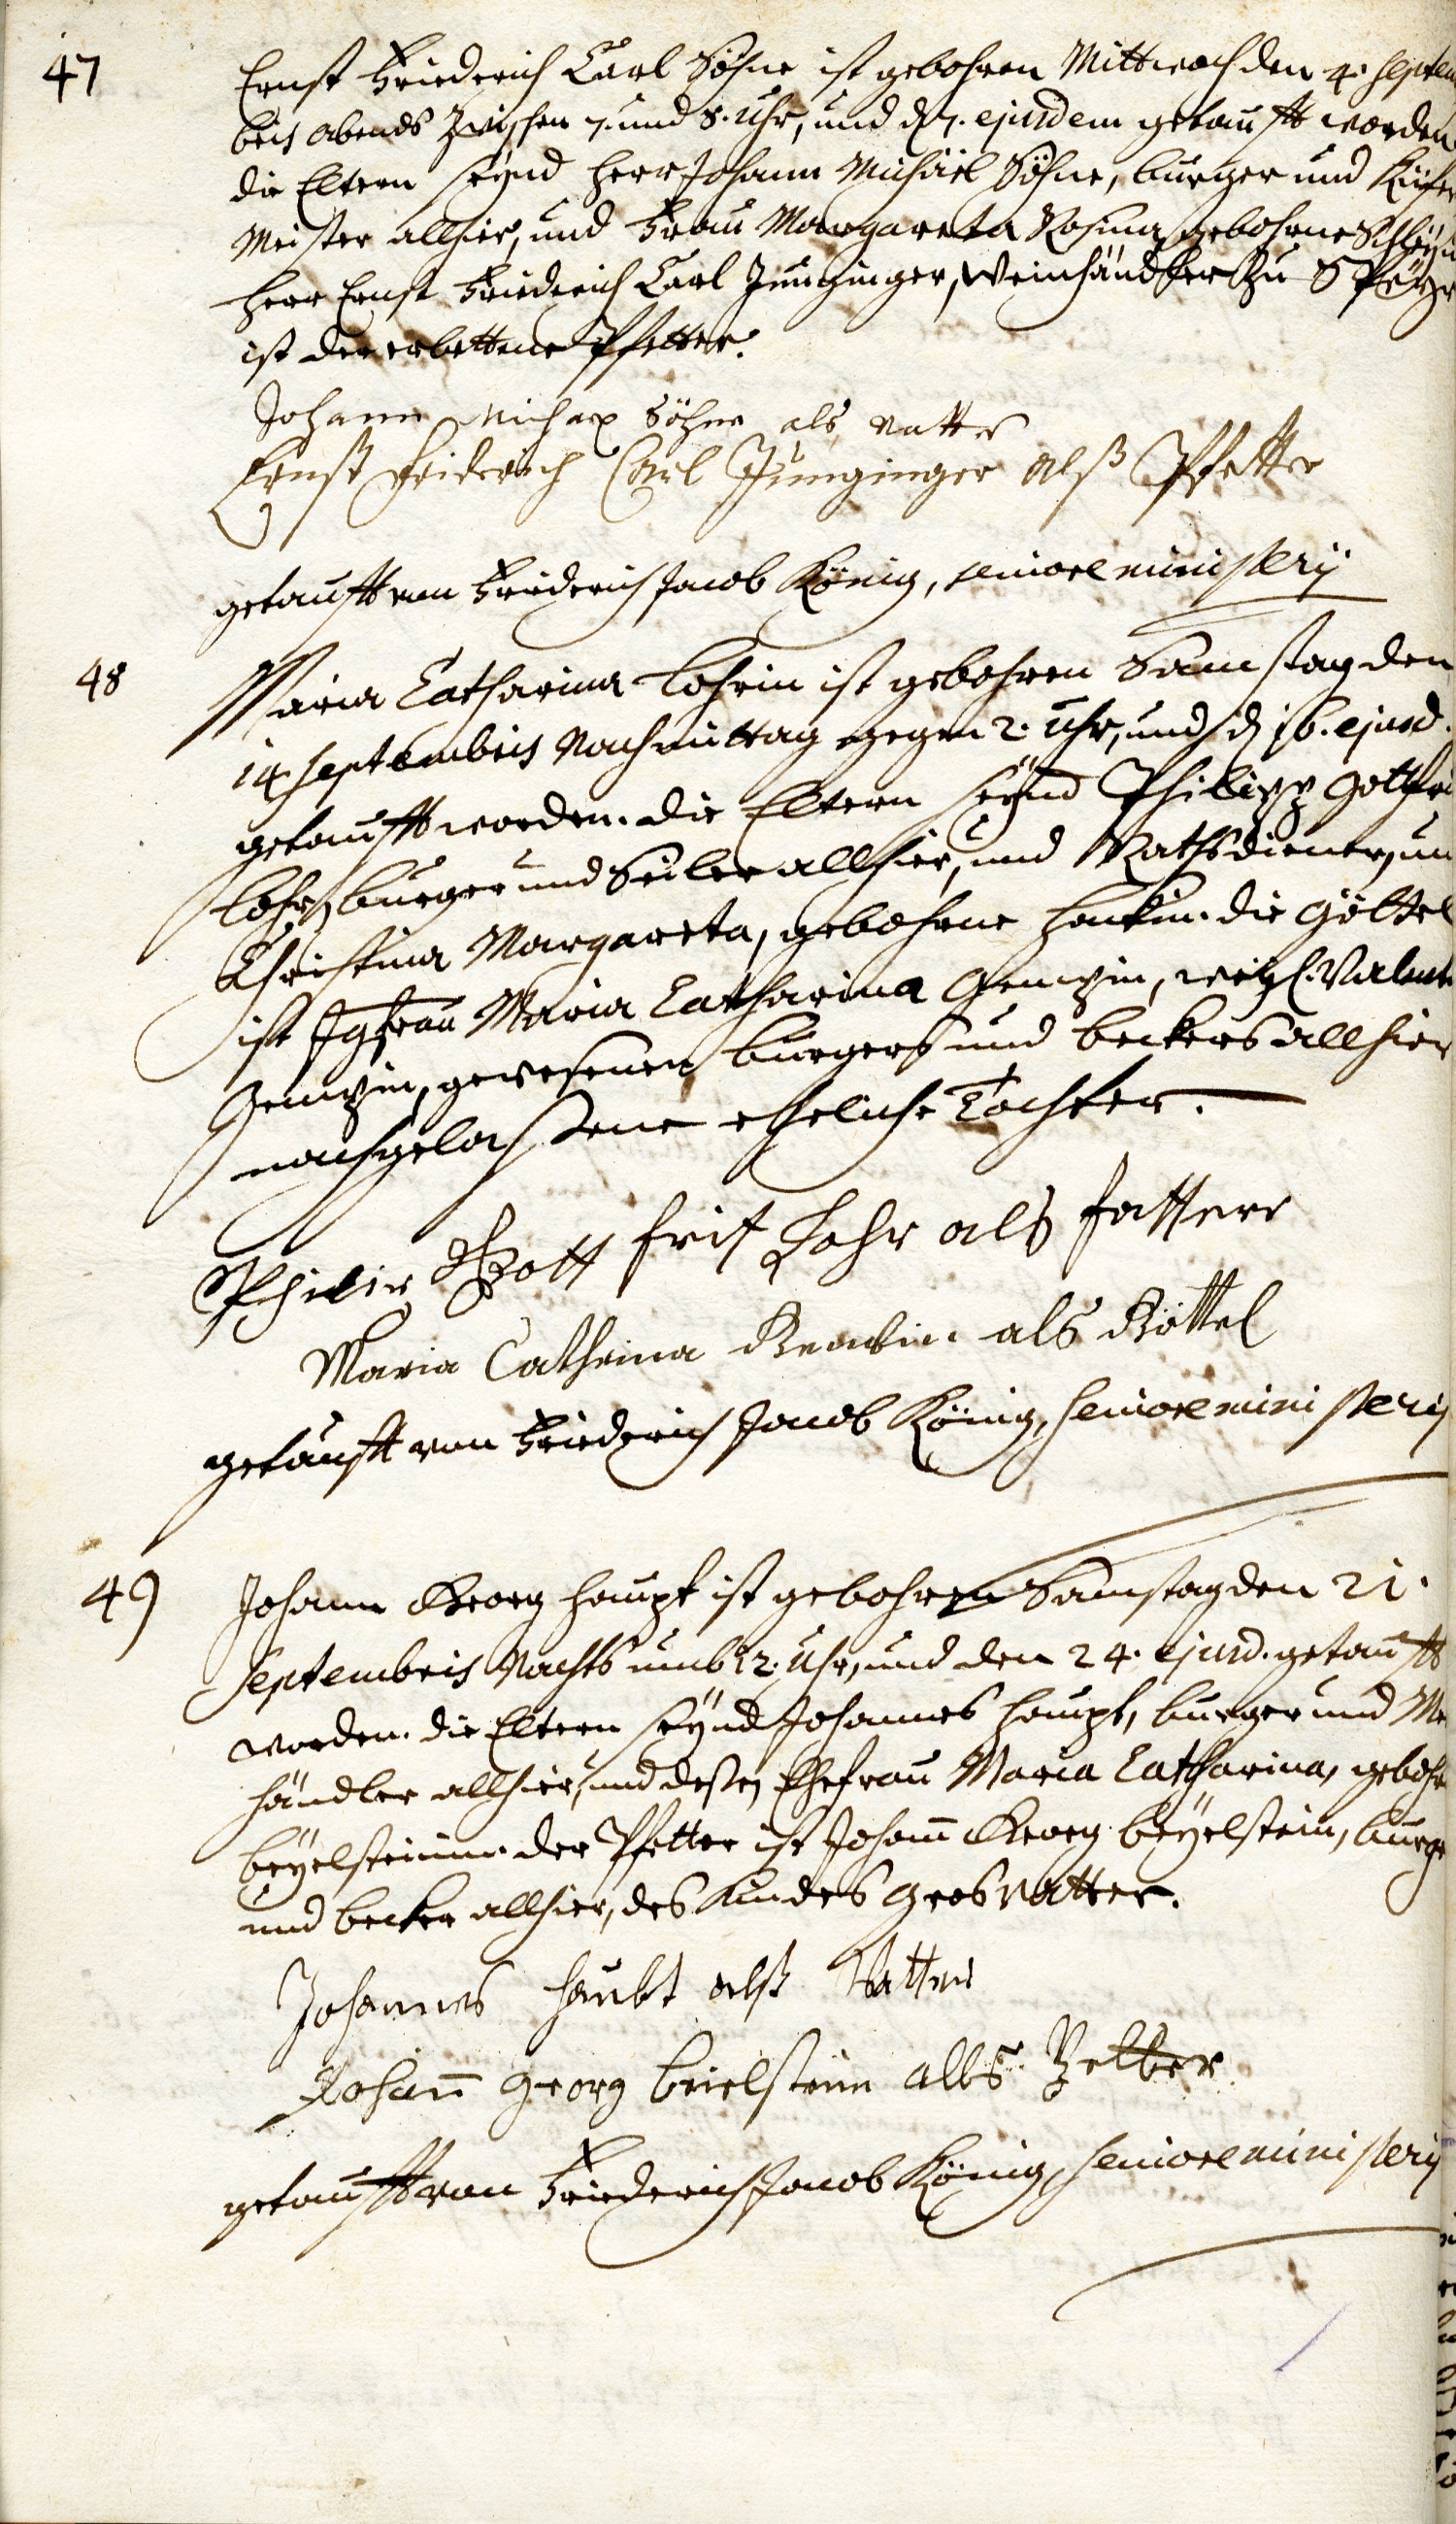 47
Ernst Friederich Carl Söhne ist gebohren Mittwoch den 4. Septem
bris abends zwischen 7. und 8. Uhr, und d. 7. ejusdem getaufft worden.
die Eltern seynd Herr Johann Michäel Söhne, burger und Küfer
Meister allhier, und Frau Margareta Rosina, gebohrne
Herr Ernst Friederich Carl Junginger, Weinhändler zu Speyer
ist der erbettene Pfetter.
Johann Michael Söhne als Vatter
Ernst Friderich Carl Junginger alß Pfetter
getaufft von Friederich Jacob König, seniore ministerij
48
Maria Catharina Lohrin ist gebohren Samstag den
14. Septembris Nachmittag gegen 2. Uhr, und d. 16. ejusd.
getaufft worden. die Eltern seynd Philipp Gottfri
Lohr, burger und Seiler allhier, und Rathsdiener, un
Christina Margareta, gebohrne die Göttel
ist Jgfrau Maria Catharina weyl. Valent
gewesenen burgers und beckers allhier
nachgelassene eheliche Tochter.
Philip Gott frit Lohr als fatterr
Maria Cathrina als Göttel
getaufft von Friederich Jacob König, seniore ministerij
49
Johann Georg Haupt ist gebohren Samstag den 21.
Septembris Nachts umb 12. Uhr, und den 24. ejusd. getaufft
worden. die Eltern seynd Johannes Haupt, burger und
händler allhier, und dessen Ehefrau Maria Catharina, gebohr
beyelsteinin. der Pfetter ist Johann Georg beyelstein, burge
und becker allhier, des Kindes Grosvatter.
Johannes Haubt alß Vatter
Johann Georg beielstein alls Petter
getaufft von Friederich Jacob König, seniore ministerij